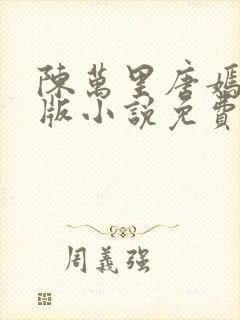 陳萬里唐嫣
版小說免費
周義强